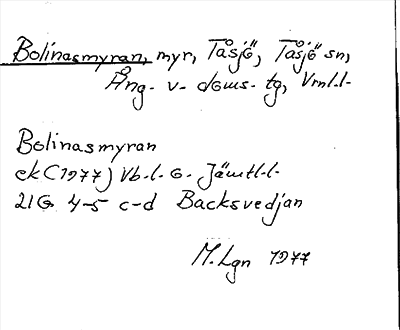 Bolinasmyran, myr, Tåsjö, Tåsjö sn,
Ång. v. doms. tg, Vrnl.l.
Bolinasmyran
ek (1977) Vb.l. o. Jämtl.l.
21G 4-5 c-d Backsvedjan
M. Lgn 1977